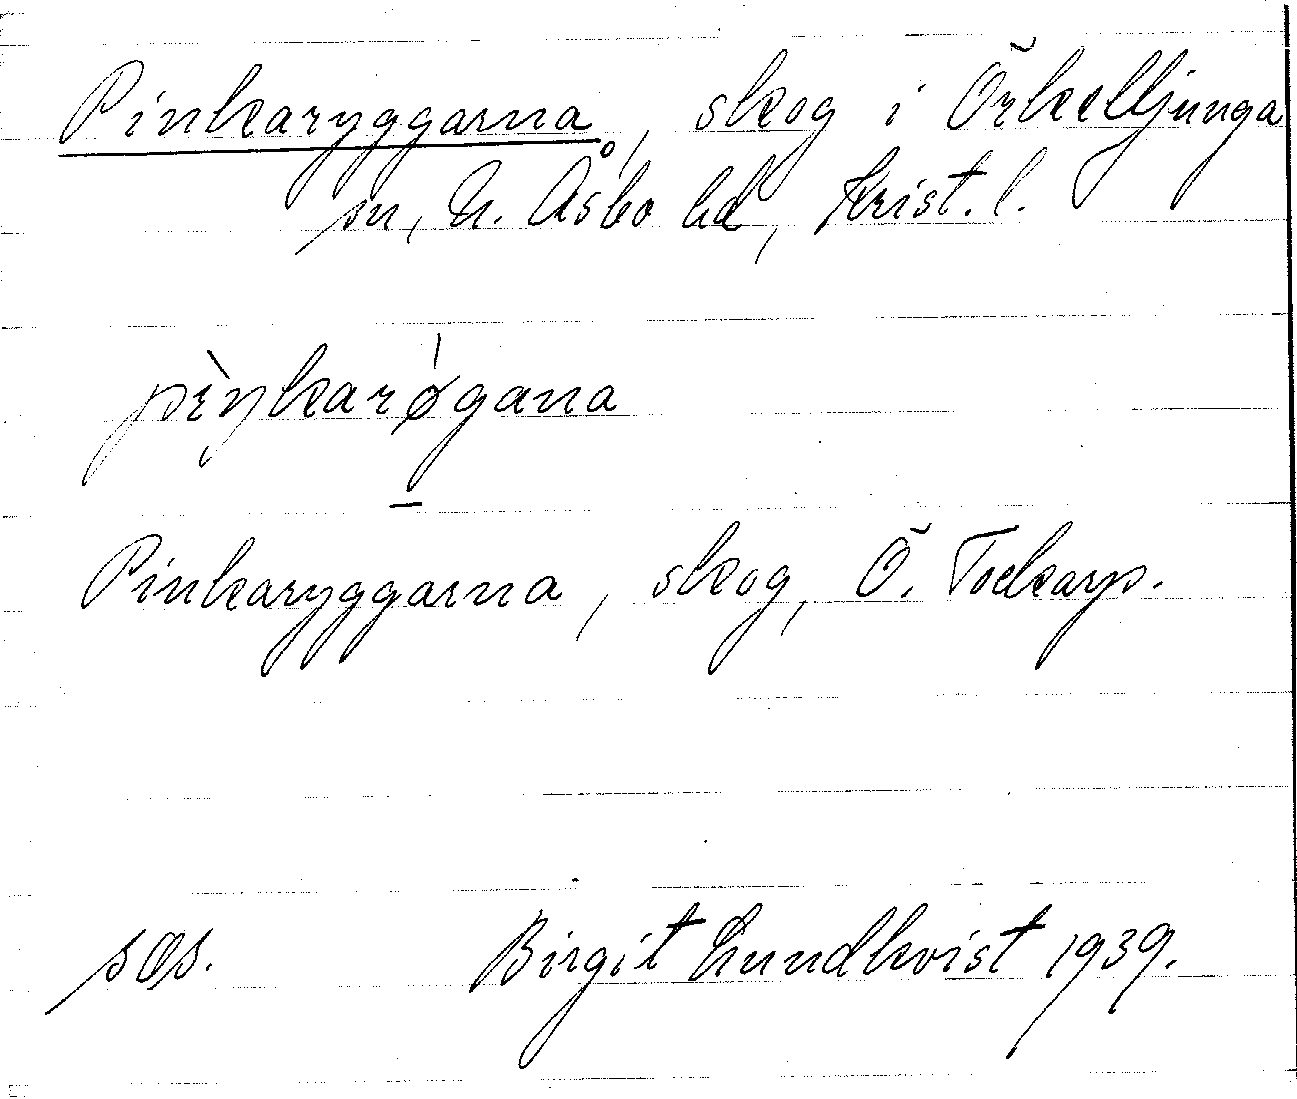 Pinkaryggarna, skog i Örkelljunga
sn, N. Åsbo hd, Krist. l.
pìŋkarǿgana
Pinkaryggarna, skog, Ö. Tockarp.
sæs. Birgit Lundkvist 1939.